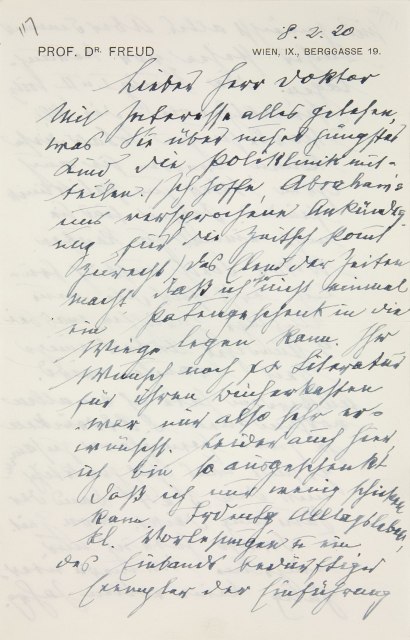 117
8. 2. 20
PROF. DR. FREUD
WIEN, IX., BERGGASSE 19.
Lieber Herr Doktor
Mit Interesse alles gelesen,
was Sie über unser jüngstes
Kind die Poliklinik mit-
teilen. Ich hoffe Abrahams
uns versprochene Ankündig-
ung für die Zeitsch kommt
zurecht. Das Elend der Zeiten
macht daß ich nicht einmal
ein Patengeschenk in die
Wiege legen kann. Ihr
Wunsch nach ψα Literatur
für ihren Bücherkasten
war mir also sehr er-
wünscht. Leider auch hier,
ich bin so ausgeschenkt
daß ich nur wenig schicken
kann. Alltagsleben,
kl. Vorlesungen u ein
des Einbands bedürftiges
Exemplar der Einführung